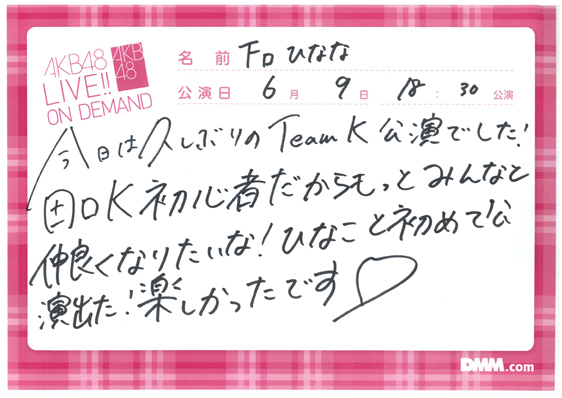 AKB48
LIVE!!
ON DEMAND
AKB
48
名前 下口ひなな
公演日 6月 9日 18:30公演
今日は久しぶりのTeam K 公演でした!
田口K初心者だからもっとみんなと
仲良くなりたいな!ひなこと初めて公
演出た!楽しかったです
DMM.com